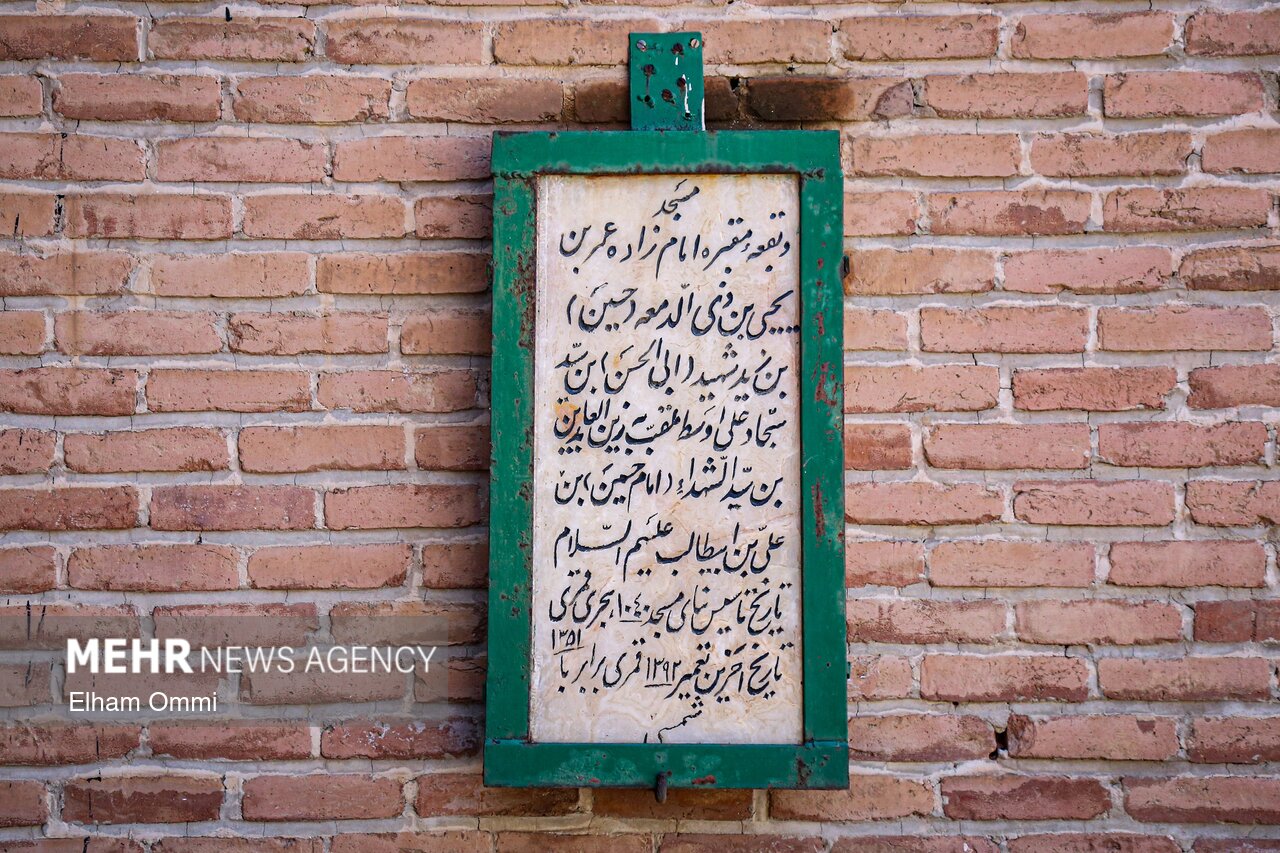 مسجد
و بقعه و مقبره امام زاده عمر بن
یحیی بن ذی الدمعه (حسین)
بن زید شهید (ابی الحسن) بن سید
سجاد علی اوسط ملقب به زین العابدین
بن سید الشهداء (امام حسین) بن
علی بن ابیطالب علیهم السلام
تاریخ تاسیس بنای مسجد ۱۰۴۰ هجری قمری
تاریخ آخرین تعمیر ۱۳۹۲ قمری برابر با ۱۳۵۱
شمسی
MEHR NEWS AGENCY
Elham Ommi